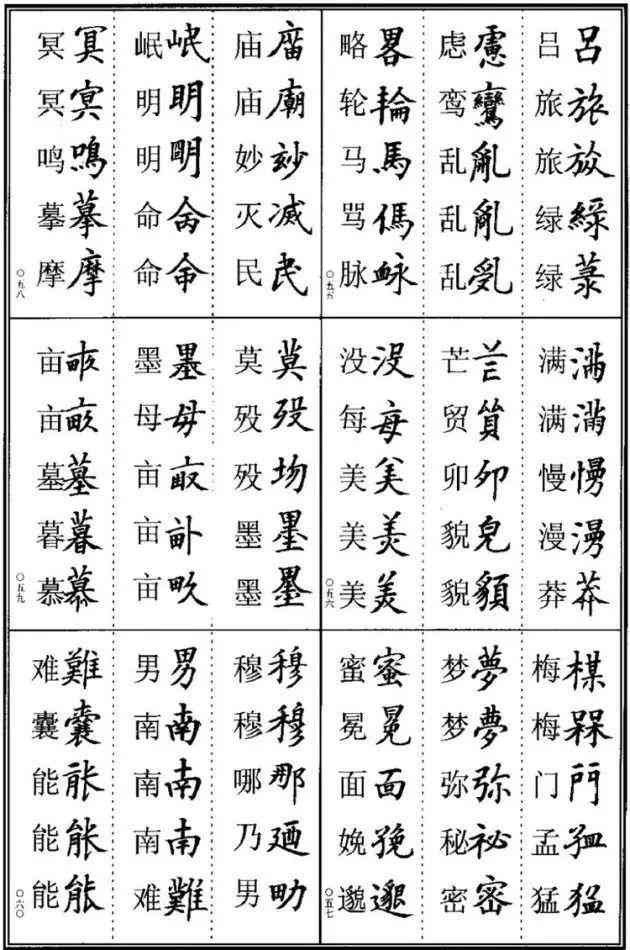 吕 呂
旅 旅
旅
绿 綠
绿 菉
虑 慮
鸾 鸞
乱 亂
乱 亂
乱
略 畧
轮 輪
马 馬
骂 傌
脉 䘑
〇五五
满 满
满 満
慢 慢
漫 漫
莽 莽
芒
贸 貿
卯 夘
貌 皃
貌
没 没
每 每
美 美
美 羙
美
〇五六
梅 楳
梅 槑
门 門
孟
猛 猛
梦 夢
梦 夢
弥 弥
秘 祕
密 密
蜜 蜜
冕 冕
面 面
娩
邈 邈
〇五七
庙
庙 廟
妙 玅
灭 滅
民 民
岷 岷
明 明
明 朙
命
命 命
冥 冥
冥 冥
鸣 鳴
摹 摹
摩 摩
〇五八
莫 莫
殁 殁
殁 歾
墨 墨
墨 墨
墨 墨
母 母
亩
亩
亩 畂
亩
亩 畝
墓 墓
暮 暮
慕 慕
〇五九
穆 穆
穆 穆
哪 那
乃 廼
男
男 男
南 南
南 南
南 南
难 難
难 難
囊 囊
能
能
能 能
〇六〇